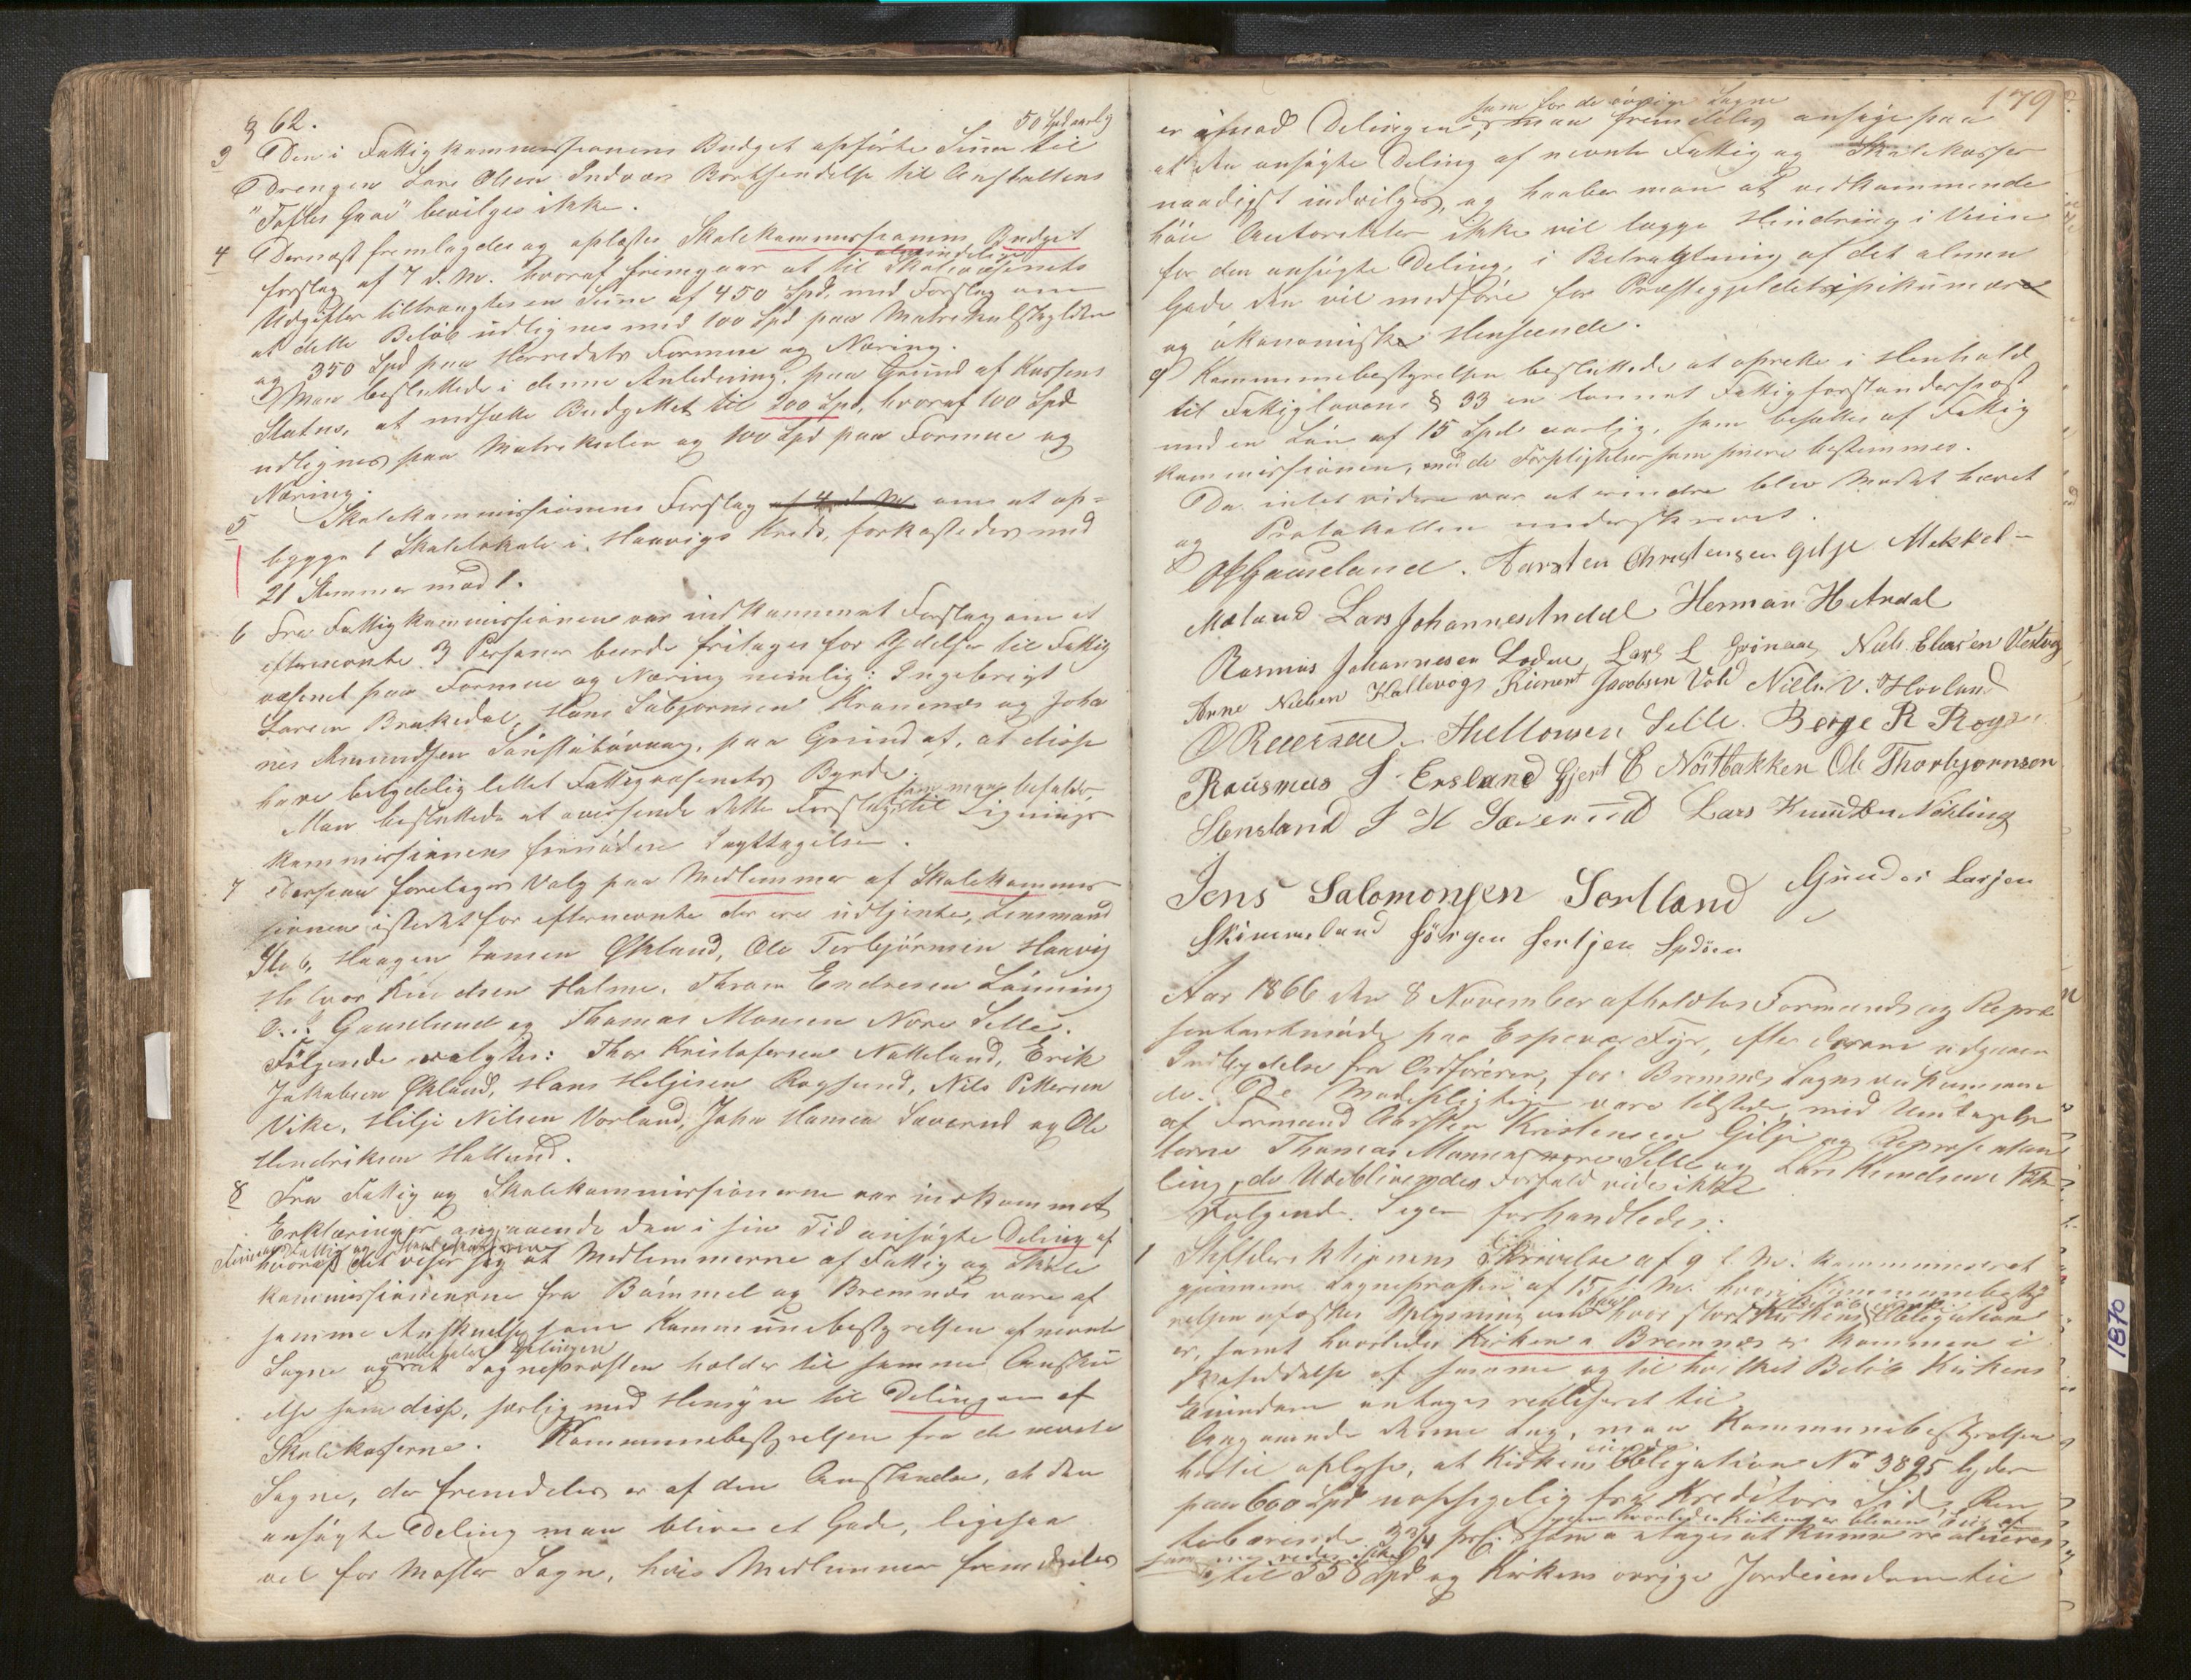 § 62.
50 Spd aarlig
3 Den i Fattigkommissionens Budget opførte Sum til
Drengen Lars Olsen Indvær Bortsendelse til Anstalten
"Toftes Gave" bevilges ikke.
4 Dernæst fremlagdes og oplæstes Skolekommissionens Budget
forslag af 7 d. M. hvoraf fremgaar at til almindelige Skolevæsenets
Udgifter tiltrængtes en Sum af 450 Spd. med Forslag om
at dette Beløb udlignes med 100 Spd paa Matrikulskylden
og 350 Spd paa Herredets Formue og Næring.
Man besluttede i denne Anledning, paa Grund af Kassens
Status, at nedsætte Budgettet til 200 Spd, hvoraf 100 Spd
udlignes paa Matrikulen og 100 Spd paa Formue og
Næring.
5 Skolekommissionens Forslag af 4 d. M. om at op-
bygge 1 Skolelokale i Haavigs Kreds, forkastedes med
21 Stemmer mod 1.
6 Fra Fattigkommissionen var indkommet Forslag om at
efternævnte 3 Personer burde fritages for Ydelse til Fattig
væsenet paa Formue og Næring nemlig: Ingebrigt
Larsen Brakedal, Hans Esbjørnsen Kraunæs og Joha
nes Amundsen, paa Grund af, at disse
have betydelig lettet Fattigvæsenets Byrde.
Man besluttede at oversende dette Forslag, som man befalder, til Lignings
kommissionens fornødne Iagttagelse.
7 Dersom foretoges Valg paa Medlemmer af Skolekommis-
sionen istedet for efternævnte der ere udtjente, Lensmand
Haagen Larsen Økland, Ole Torbjørnsen Haavig
Halvor Knudsen Holme, Thron Endresen Lønning
O. J. Gauseland og Thomas Monsen Nore Selle.
Følgende valgtes: Thor Kristofersen Natteland, Erik
Jakobsen Økland, Hans Helgesen Røgsund, Nils Pettersen
Vike, Helje Nilsen Vorland, John Hansen Saverud og Ole
Hendriksen Hallund.
8 Fra Fattig og Skolekommissionerne var indkommet
Erklæringer angaaende den i sin Tid ansøgte Deling af
Finnaas Fattig og Skolekasserne
hvoraf det viser sig at Medlemmerne af Fattig og Skole
kommissionerne fra Bømmel og Bremnæs vare af
samme Anskuelse som Kommunebestyrelsen af nævnte
Sogne og at angaaende Delingen Sognepræsten holder til samme Ansku
else som disse, særlig med Hensyn til Delingen af
Skolekasserne. Kommunebestyrelsen fra de nævnte
Sogne, der fremdeles er af den Anskuelse, at den
ansøgte Deling maa blive et Gode, ligesaa
vel for Moster Sogn, hvis Medlemmer fremdeles
179
er imod Delingen, som for de øvrige Sogne maa fremdeles ansøge paa
at den ansøgte Deling af nævnte Fattig og Skolekasser
naadigst indvilges, og haaber man at vedkommende
høie Autoriteter ikke vil lægge Hindring i Veien
for den ansøgte Deling, i Betragtning af det almene
Gode den vil medføre for Præstegjeldets i pekuniære
og økonomiske Henseende.
9 Kommunebestyrelsen besluttede at oprette i Henhold
til Fattiglovens § 33 en lønnet Fattigforstanderpost
med en Løn af 15 Spd aarlig, som besættes af Fattig
kommissionen, med de Forpligtelser som senere bestemmes.
Da intet videre var at erindre blev Mødet hævet
og Protokollen underskrevet.
O J Gauseland. Aarsten Christensen Gilje Mekkel-
Mæland Lars Johannes Andal Herman H Andal
Rasmus Johannesen Lodden, Lars L Grønaas Niels Eliasen Vestvig
Arne Nielsen Kallevog Rievert Jacobsen Vold Niels V. Hovland
Th Monsen Selle. Berge R Røgs
Rausmus J. Ersland Gjert E Nøstbakken Ole Thorbjørnsen
Stensland J H Saverud Lars Knudsen Nøkling
Jens Salomonsen Sortland Gunder Larsen
Skimmeland Jørgen Sertsen Spdøen
Aar 1866 den 8 November afholdtes Formands og Repræ
sentantmøde paa Espevær Fyr, efter derom udgaaen
Indbydelse fra Ordføreren, for Bremnes Sogns vedkommen
de. De Mødepligtige vare tilstede, med Undtagelse
af Formand Aarsten Kristensen Gilje og Repræsentan
terne Thomas Monsen nore Selle og Lars Knudsen Nøk
ling, de Udeblivendes Forfald vides ikke
Følgende Sager forhandledes:
1 Stiftsdirektionens Skrivelse af 9 f. M. kommuniceret
gjennem Sognepræsten af 15 f. M. hvori Kommunebesty
relsen afæskes Oplysning om hvor stor Kirkens Obligation
er, samt hvorledes Kirken i Bremnes er kommen i
Besiddelse af samme og til hvilket Beløb Kirkens
Eiendom antages realiseret til
Angaaende denne Sag, maa Kommunebestyrelsen
hertil oplyse, at Kirkens Obligation No 3895 lyder
paa 600 Spd uopsigelig fra Kreditors Side, Ren
tebærende 3 3/4 prC. som antages at kunne realiseres
som man veed ikke
til 558 Spd og Kirkens øvrige Jordeiendom til
1870